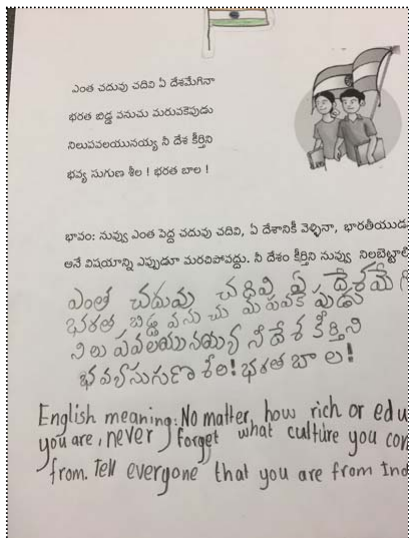 ఎంత చదువు చదివి ఏ దేశమేగినా
భరత బిడ్డ వనుచు మరువకెపుడు
నిలుపవలయునయ్య నీ దేశ కీర్తిని
భవ్య సుగుణ శీల ! భరత బాల !
భావం: నువ్వు ఎంత పెద్ద చదువు చదివి, ఏ దేశానికి వెళ్ళినా, భారతీయుడ
అనే విషయాన్ని ఎప్పుడూ మరచిపోవద్దు. నీ దేశం కీర్తిని నువ్వు నిలబెట్టాలి
ఎంత చదువు చదివి ఏ దేశమే
భరత బిడ్డ వను చు మ పవకె పుడు
ని లు పవలయునయ్య నీ దేశ కీర్తిని
భవ్యసుగుణ శీల! భరత బా ల!
English meaning: No matter, how rich or edu
you are, never forget what culture you com
from. Tell everyone that you are from Ind